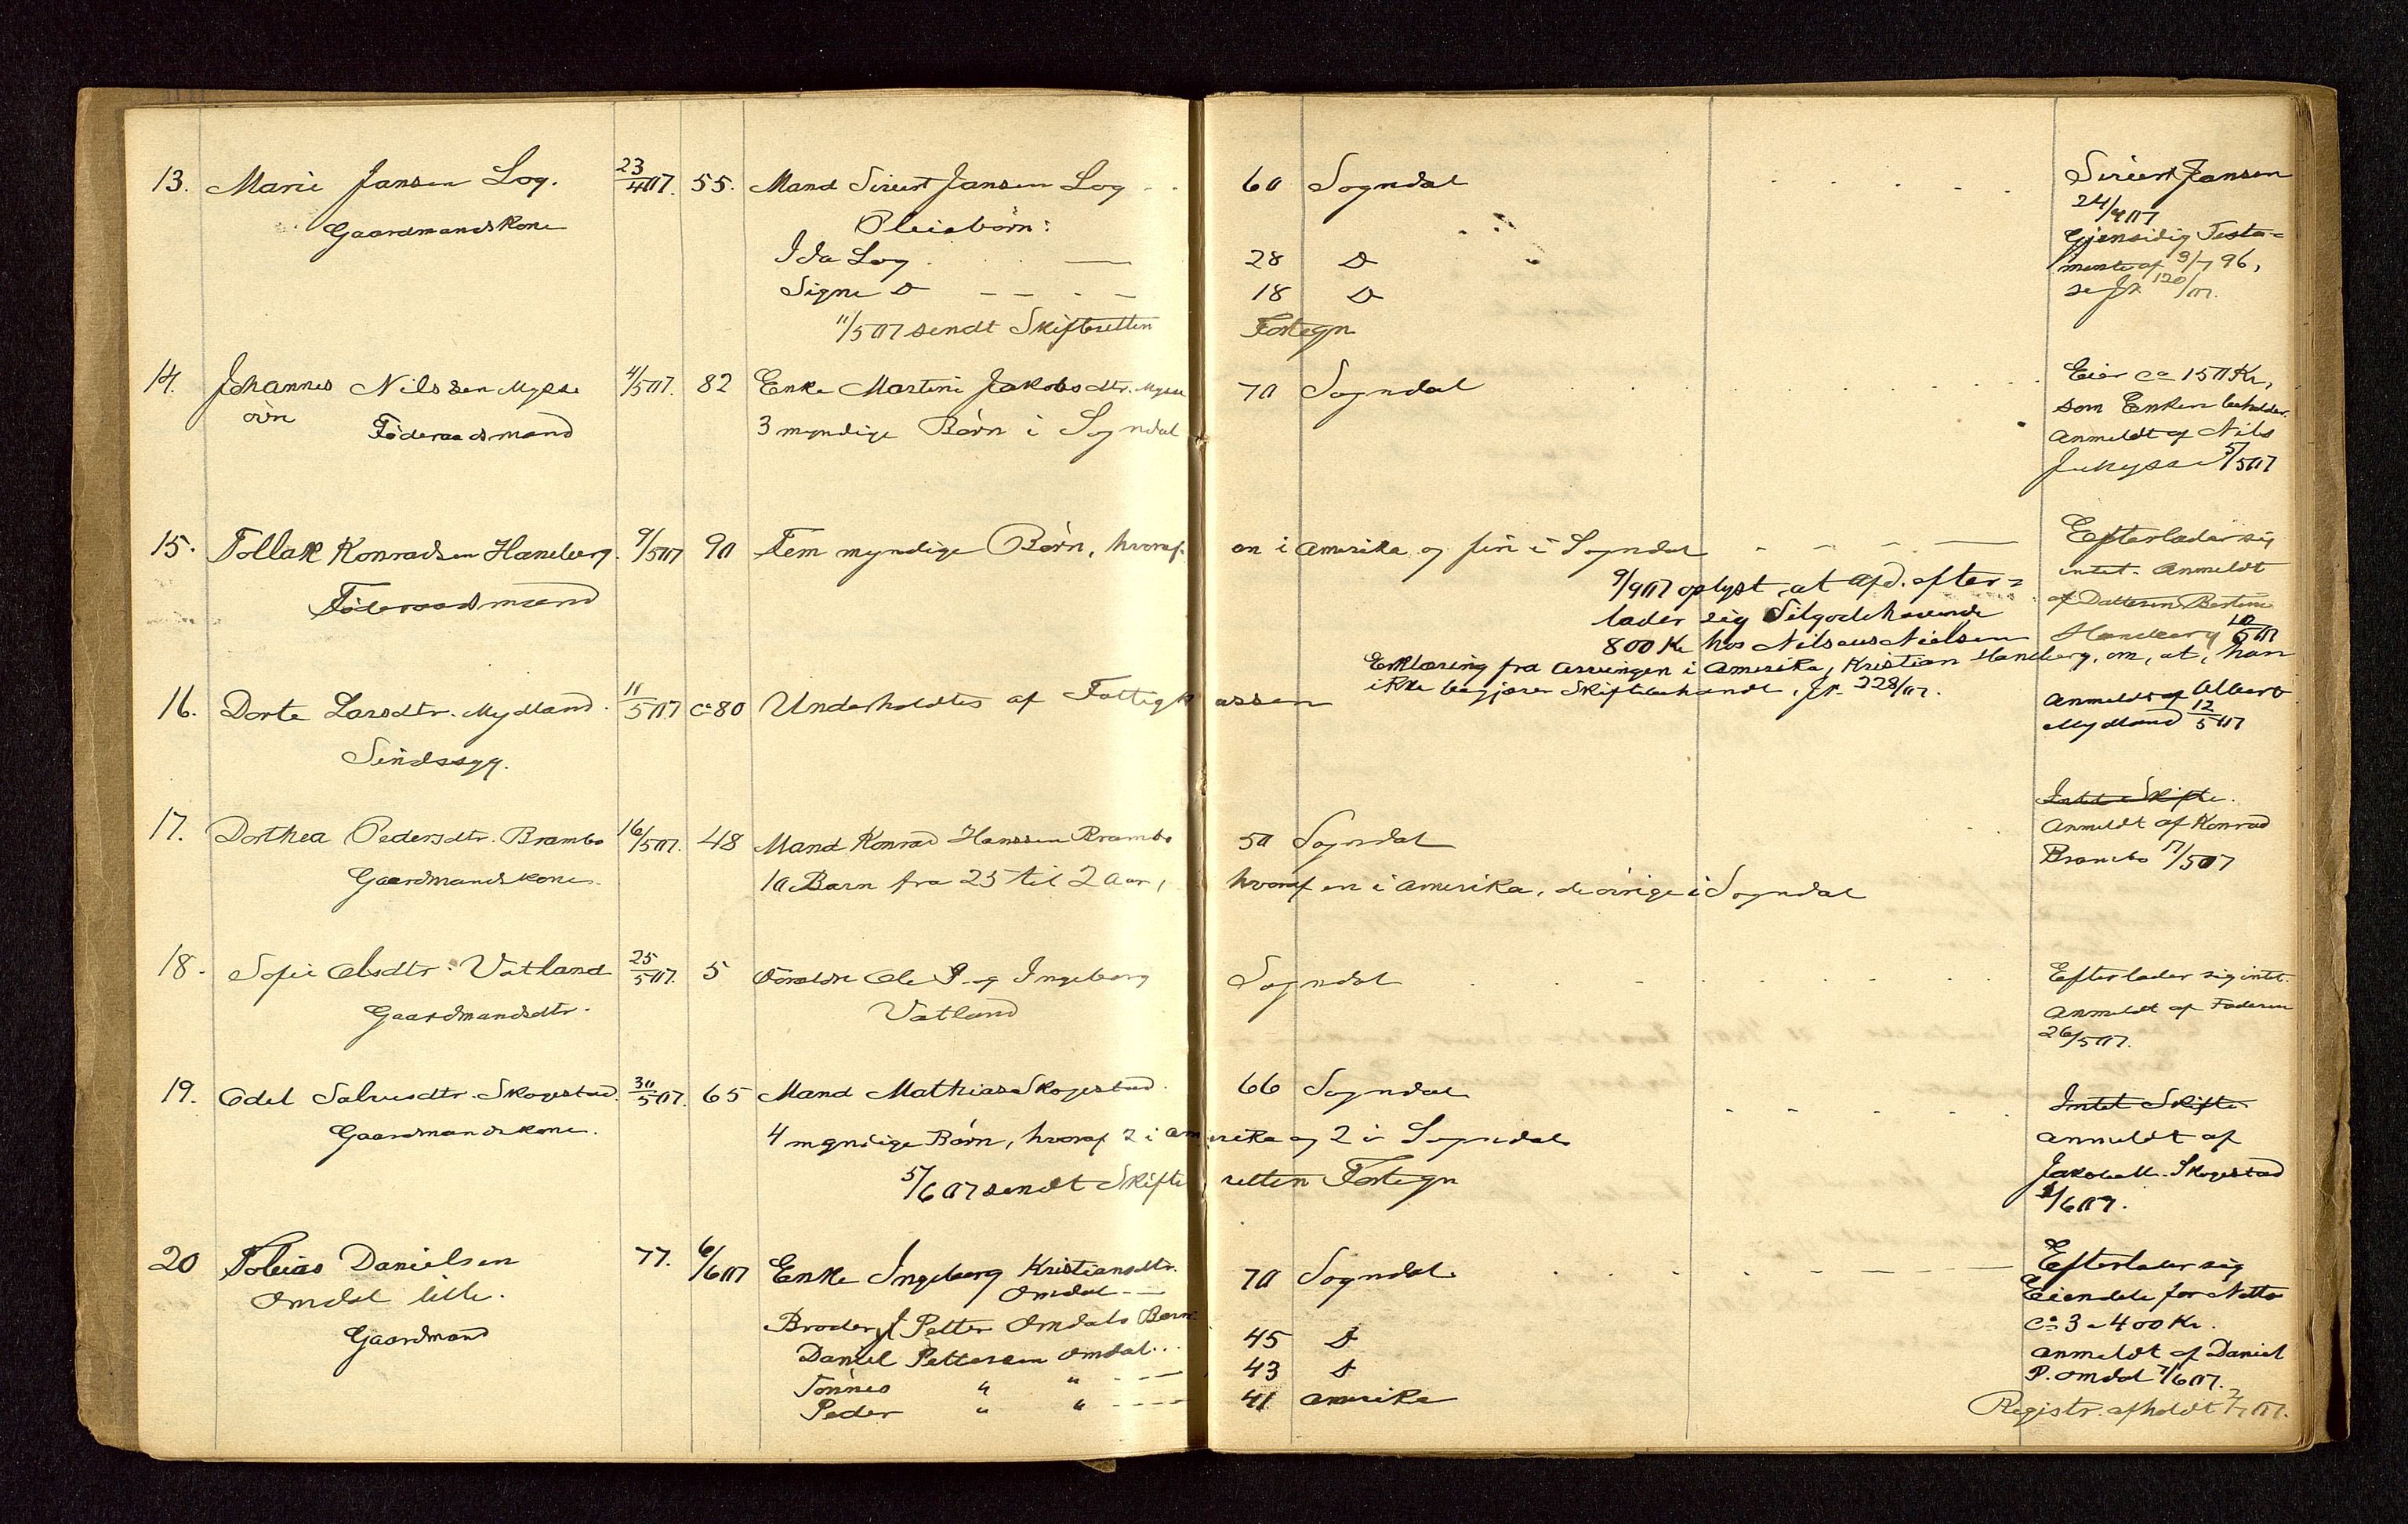 13. Marie Jansen Log. 23/4 07. 55. Mand Sivert Jansen Log - - 60 Sogndal - - - - Sivert Jansen
Gaardmandskone Pleiebörn: 24/4 07
Ida Log - — 28 D Gjensidig Testa=
Signe D — — - — 18 D mente af 9/7 96,
11/5 07 sendt Skifteretten Fortegn se Jr 120/07.
14. Johannes Nilssen Mysse 4/5 07. 82 Enke Martine Jakobsdtr. Mysse 70 Sogndal - - - - Eier ca 150 Kr,
övre Föderaadsmand 3 myndige Börn i Sogndal som Enken beholder.
Anmeldt af Nils
J. Mysse 5/5 07
15. Tollak Konradsen Haneberg. 9/5 07 90 Fem myndige Börn, hvoraf en i Amerika og fire i Sogndal - - - — Efterlader sig
Föderaadsmand 9/9 07 oplyst, at afd. efter= intet. Anmeldt
lader sig Tilgodehavende af Datteren Bertine
800 Kr hos Nilsaus Nielsen Haneberg 10/5 07
Erklæring fra Arvingen i Amerika, Kristian Haneberg, om, at, han
ikke begjærer Skiftebehandl, Jr. 228/07.
16. Dorte Larsdtr. Mydland. 11/5 07 ca 80 Underholdtes af Fattigkassen Anmeldt af Albert
Sindssyg. Mydland 12/5 07
Intet Skifte.
17. Dorthea Pedersdtr. Brambo 16/5 07. 48 Mand Konrad Hanssen Brambo 50 Sogndal Anmeldt af Konrad
Gaardmandskone. 10 Barn fra 25 til 2 Aar, hvoraf en i Amerika, de övrige i Sogndal Brambo 17/5 07
18. Sofie Olsdtr. Vatland 25/5 07. 5 Forældre Ole P. og Ingeborg Sogndal - - - - Efterlader sig intet.
Gaardmandsdtr. Vatland Anmeldt af Faderen
26/5 07.
19. Odel Salvesdtr. Skogestad. 30/5 07. 65 Mand Mathias Skogestad. 66 Sogndal - - - - Intet Skifte
Gaardmandskone. 4 myndige Börn, hvoraf 2 i Amerika og 2 i Sogndal Anmeldt af
5/6 07 sendt Skifteretten Fortegn Jakob M. Skogestad
1/6 07.
20 Tobias Danielsen 77. 6/6 07 Enke Ingeborg Kristiansdtr. 70 Sogndal - - - - — Efterlader sig
Omdal lille. Omdal - — Eiendele for Netto
Gaardmand Broder Petter Omdals Barn: ca 3 a 400 Kr.
Daniel Pettersen Omdal... 45 D Anmeldt af Daniel
Tönnes " " - - — 43 D P. Omdal 7/6 07.
Peder " " - - - — 41 Amerika Registr. afholdt 2/7 07.